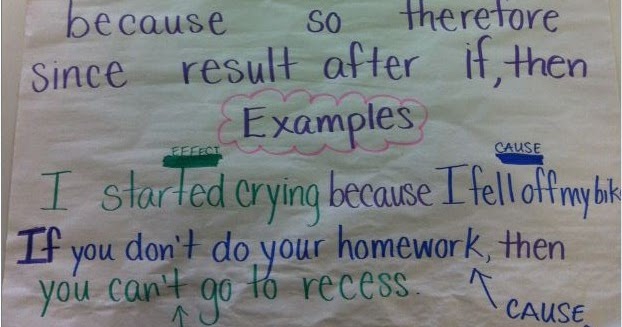 because so therefore
since result after if, then
Examples
EFFECT CAUSE
I started crying because I fell off my bik
If you don't do your homework, then
you can't go to recess.
CAUSE